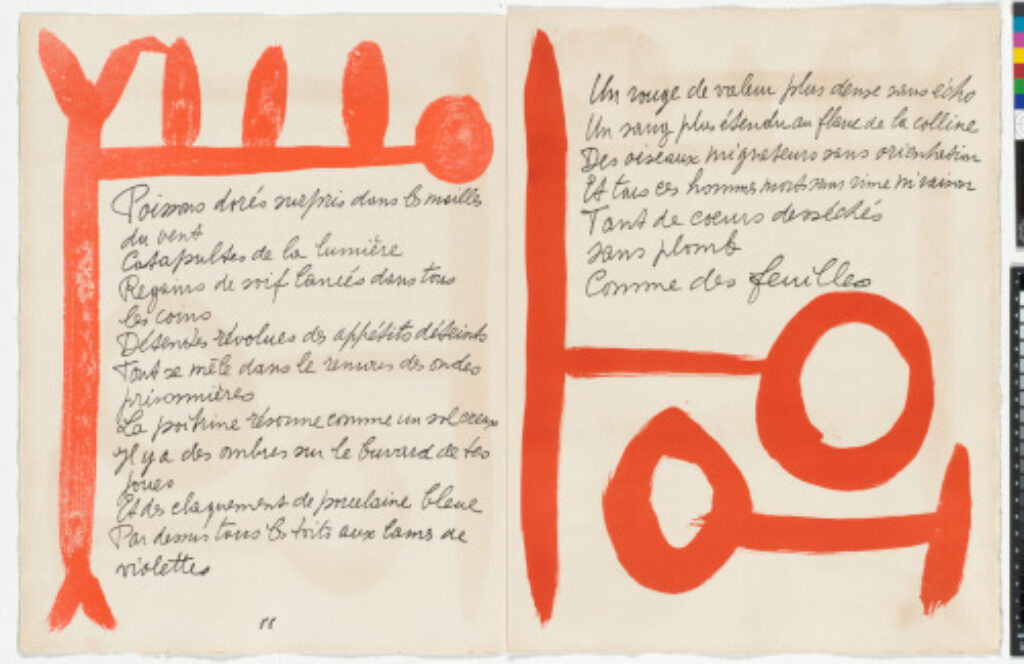 Poissons dorés surpris dans les mailles
du vent
Catapultes de la lumière
Regains de soif lancés dans tous
les coins
Détentes révolues des appétits déteints
Tout se mêle dans le remures des ondes
prisonnières
La poitrine résonne comme un sol creux
Il y a des ombres sur le buvard de tes
joues
Et des claquement de porcelaine bleue
Par dessus tous les toits aux lames de
violettes
Un rouge de valeur plus dense sans écho
Un sang plus étendu au flanc de la colline
Des oiseaux migrateurs sans orientation
Et tous ces hommes morts sans rime ni raison
Tant de coeurs desséchés
sans plomb
Comme des feuilles